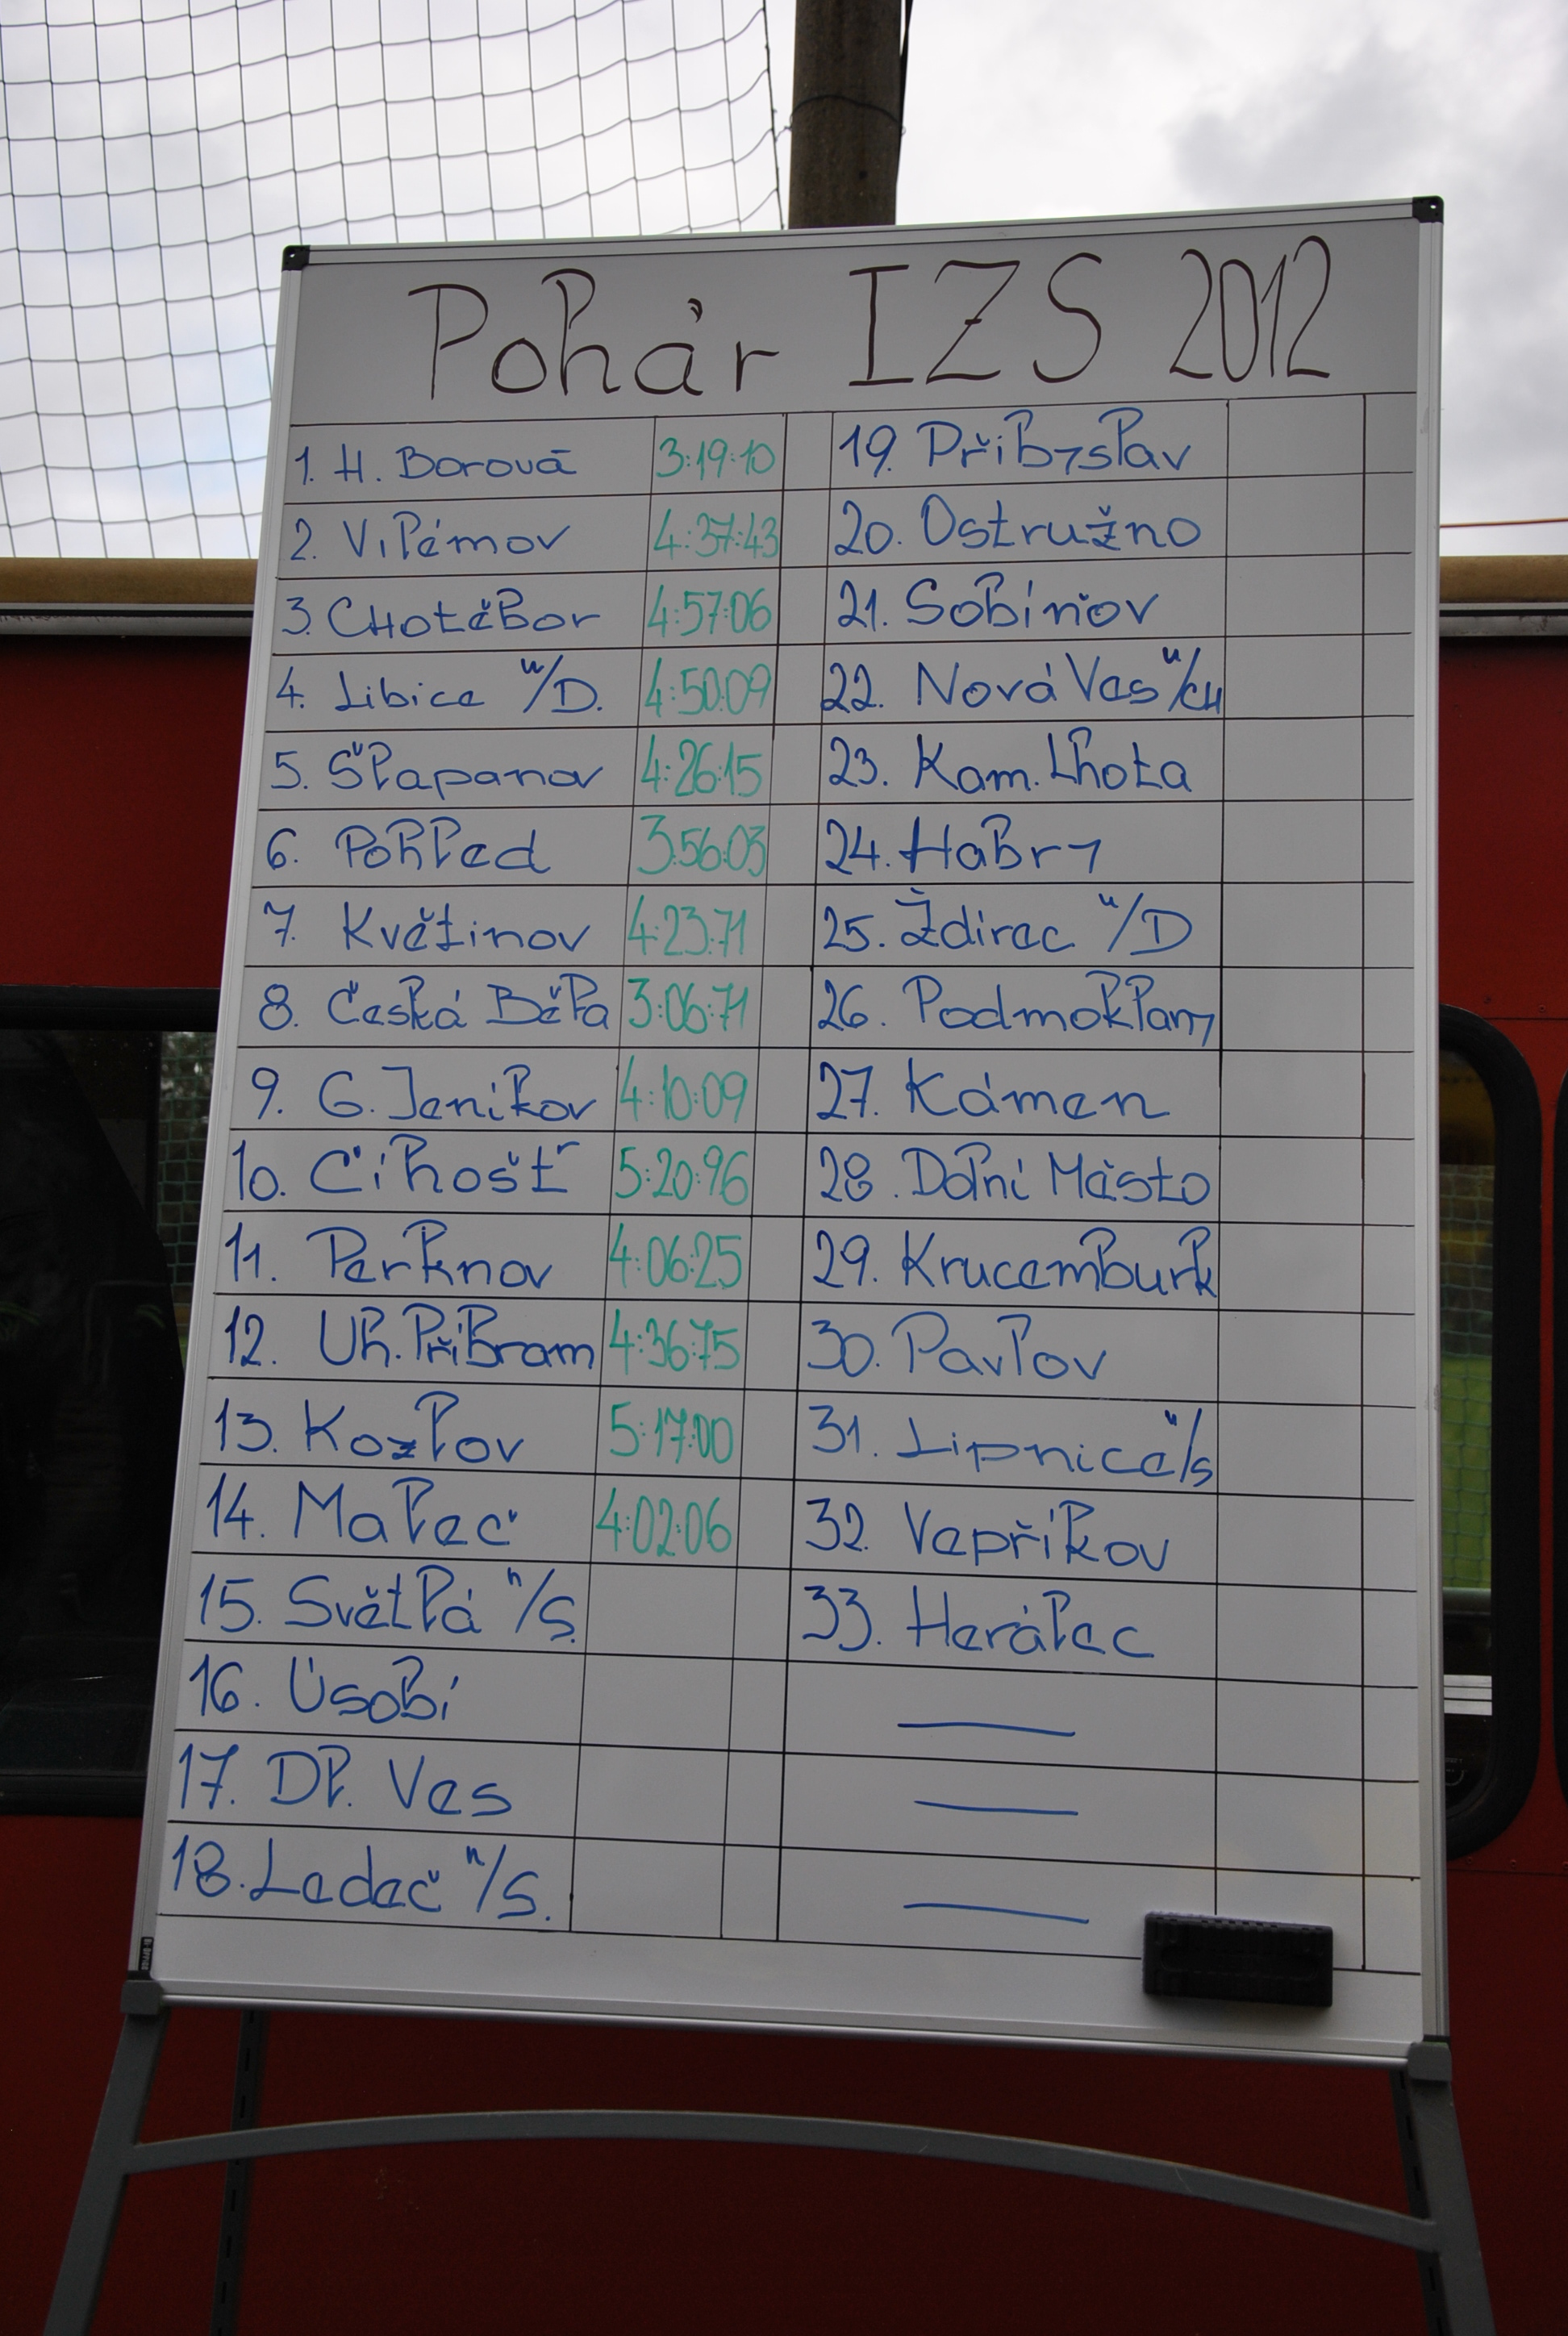 Pohár IZS 2012
1. H. Borová 3:19:10
2. Vilémov 4:37:43
3. CHotěbor 4:57:06
4. Libice n/D. 4:50:09
5. Šlapanov 4:26:15
6. Pohled 3:56:03
7. Květinov 4:23:71
8. Česká Běla 3:06:71
9. G. Jeníkov 4:10:09
10. Číhošť 5:20:96
11. Perknov 4:06:25
12. Uh. Příbram 4:36:75
13. Kozlov 5:17:00
14. Maleč 4:02:06
15. Světlá n/S.
16. Úsobí
17. Dl. Ves
18. Ledeč n/S.
19. Přibyslav
20. Ostružno
21. Sobíňov
22. Nová Ves u/CH
23. Kam. Lhota
24. Habry
25. Ždírec n/D
26. Podmoklany
27. Kámen
28. Dolní Město
29. Krucemburk
30. Pavlov
31. Lipnice n/s
32. Vepříkov
33. Herálec